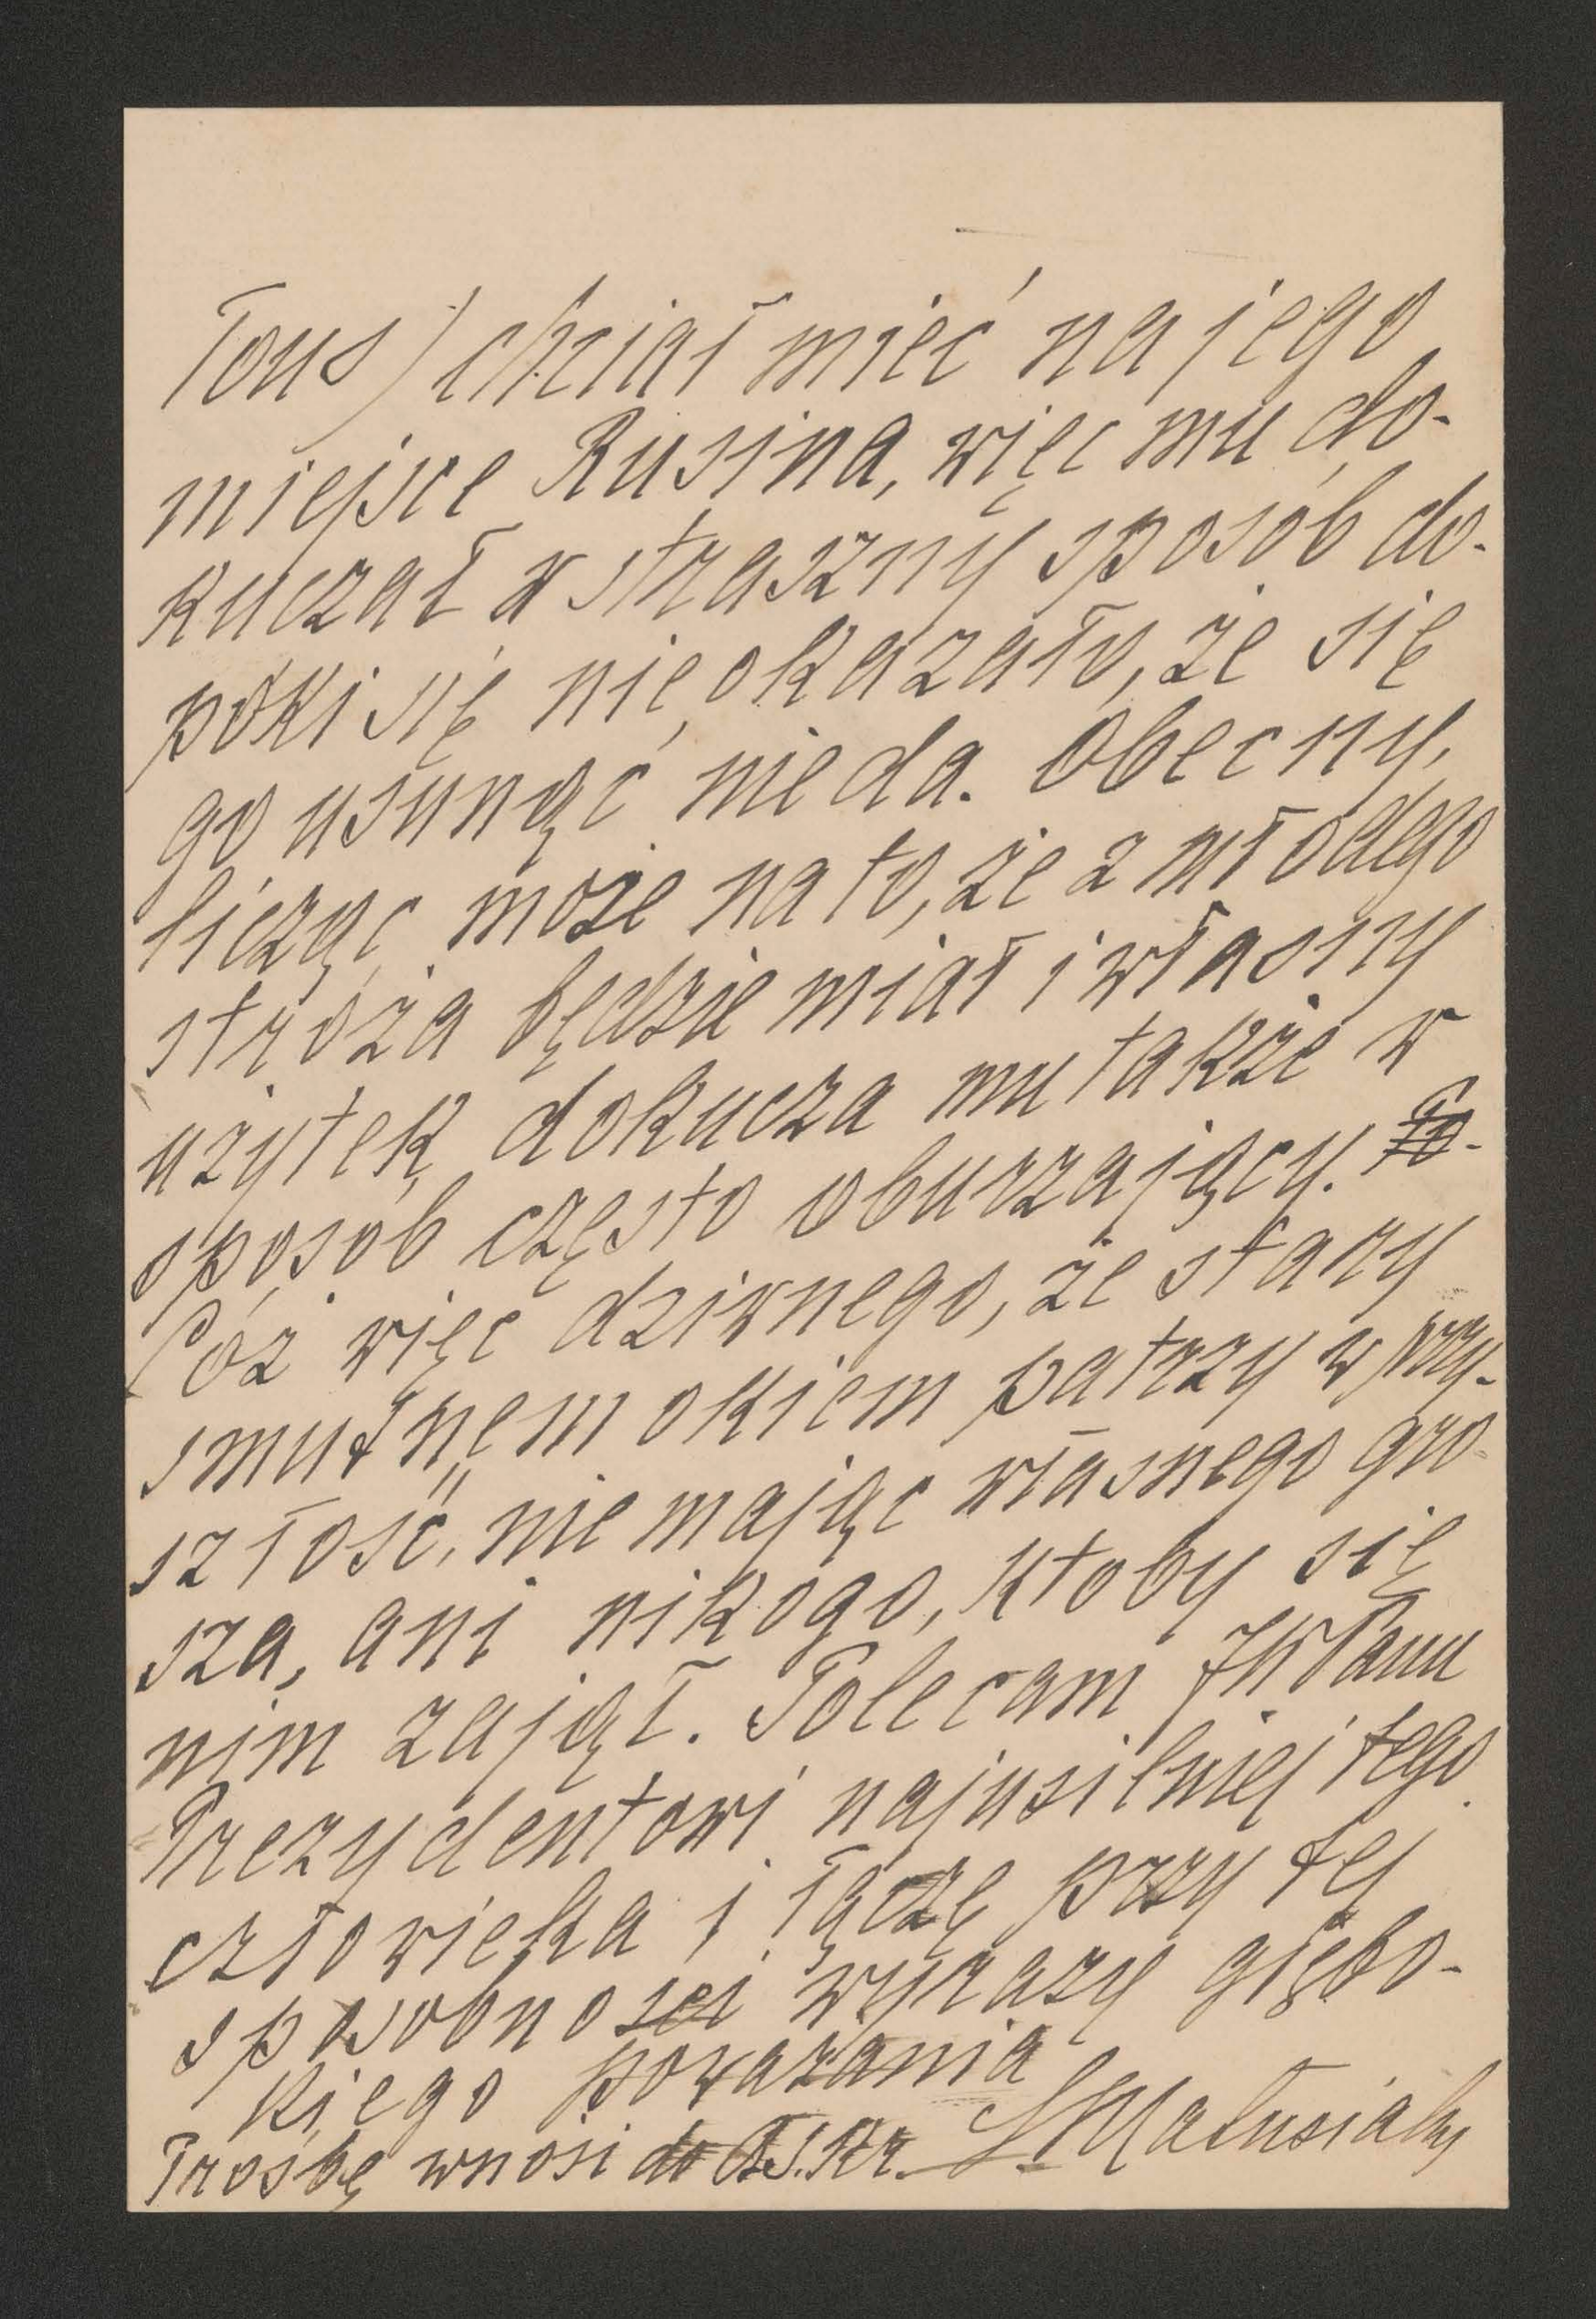 Tous) chciał mieć na jego
miejsce Rusina, więc mu do-
kuczał w straszny sposób do-
póki się nie okazało, że się
go usunąć nie da. Obecny,
licząc może na to, że z młodego
stróża będzie miał i własny
użytek, dokucza mu także w
sposób często oburzający.
Cóż więc dziwnego, że stary
smutnem okiem patrzy w przy-
szłość, nie mając własnego gro-
sza, ani nikogo, ktoby się
nim zajął. Polecam JWPanu
Prezydentowi najusilniej tego
człowieka i łączę przy tej
sposobności wyrazy głębo-
kiego poważania
Prośbę wnosi do